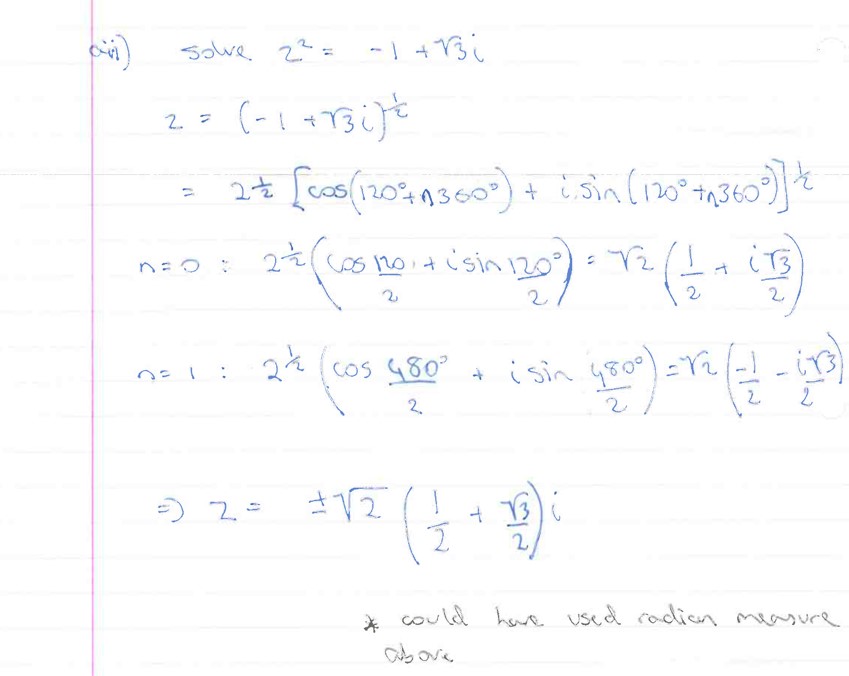 aiii) solve z² = -1 + √3i
z = (-1 + √3i)^½
= 2^½ [cos(120° + n360°) + i sin(120° + n360°)]^½
n = 0 : 2^½ (cos 120/2 + i sin 120°/2) = √2 (1/2 + i√3/2)
n = 1 : 2^½ (cos 480°/2 + i sin 480°/2) = √2 (-1/2 - i√3/2)
=> z = ±√2 (1/2 + √3/2)i
* could have used radian measure
above